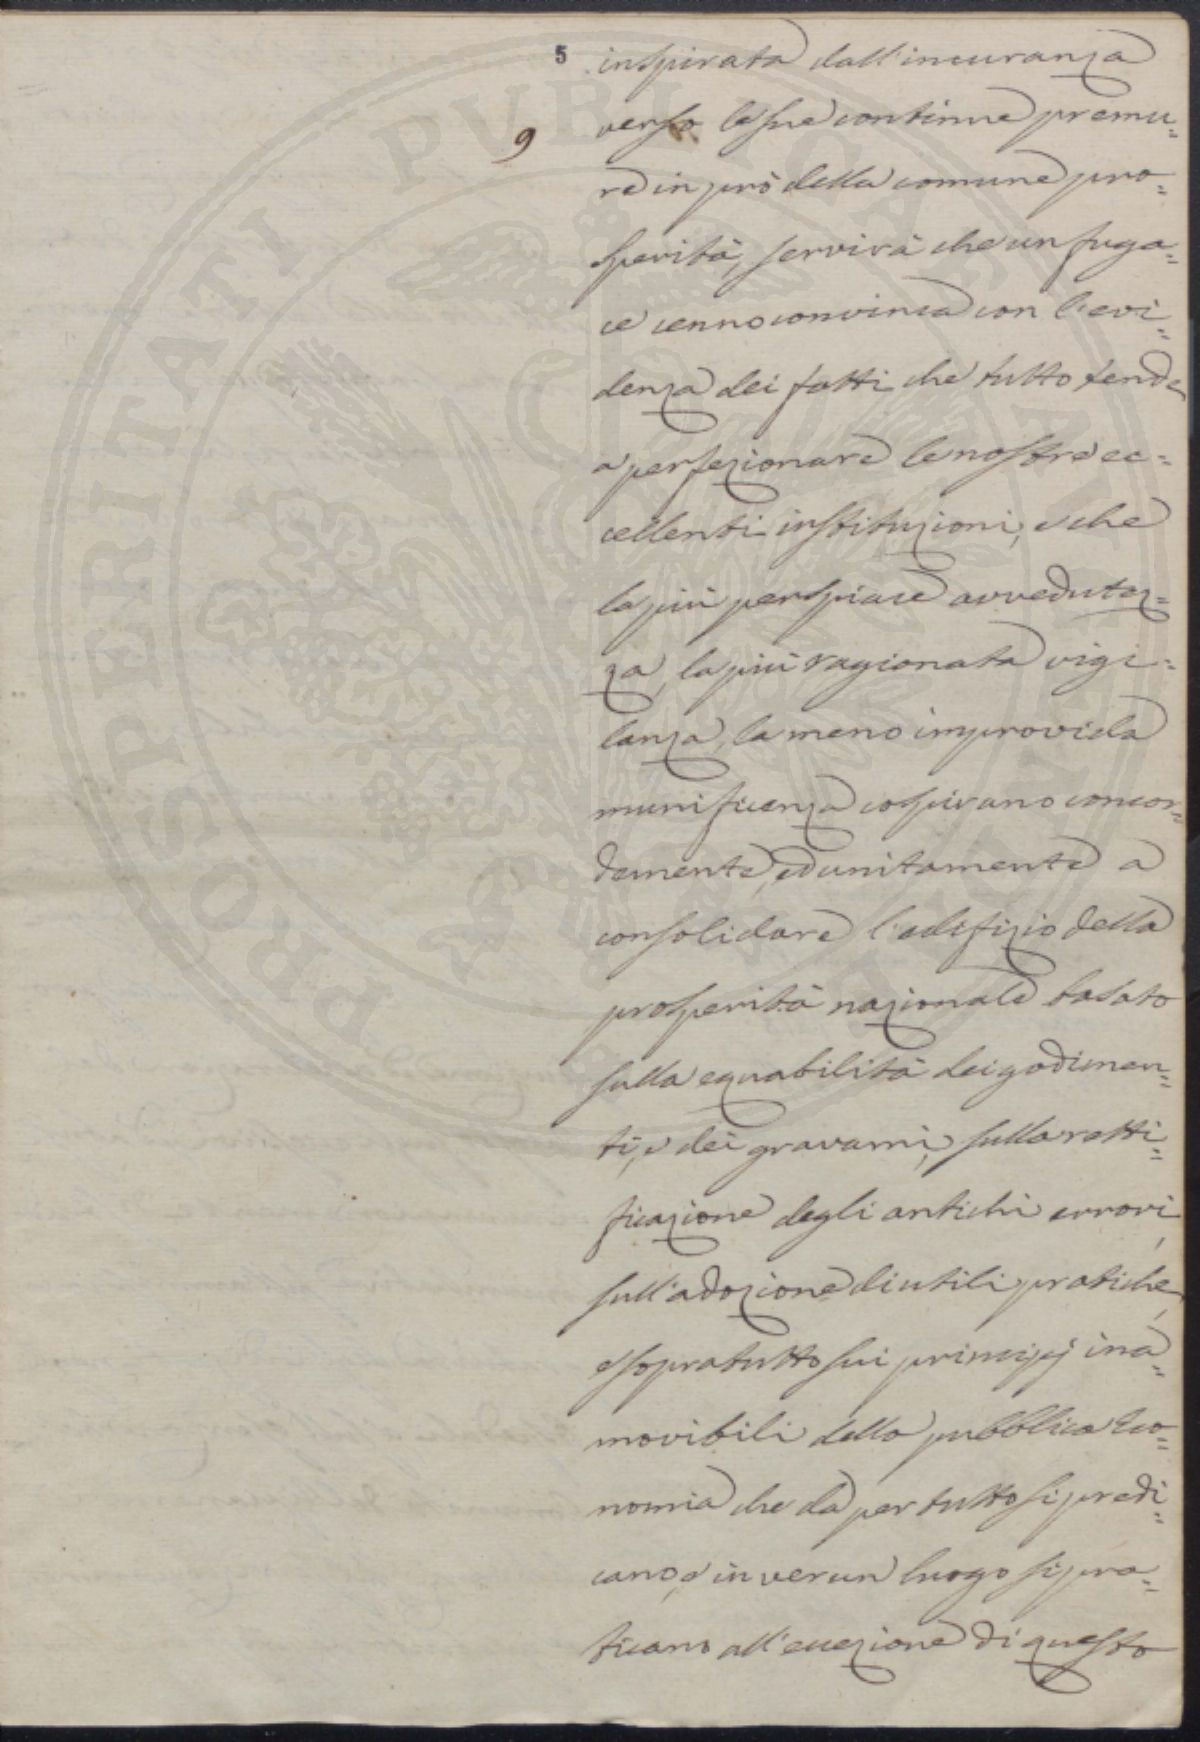 5 inspirata dall'incuranza
9 verso le sue continue premu=
re in prò della comune pro=
sperità, servirà che un fuga=
ce cenno convinca con l'evi=
denza dei fatti che tutto tende
a perfezionare le nostre ec=
cellenti instituzioni, e che
la più perspicace avvedutez=
za, la più ragionata vigi=
lanza, la meno improvida
munificenza cospirano concor=
demente, ed unitamente a
consolidare l'edifizio della
prosperità nazionale basato
sulla equabilità dei godimen=
ti, e dei gravami, sulla retti=
ficazione degli antichi errori,
sull'adozione di utili pratiche,
e sopratutto sui principj ina=
movibili della pubblica Eco=
nomia che da per tutto si predi=
cano, e in verun luogo si pra=
ticano all'eccezione di questo
PROSPERITATI PVBLICAE AVGENDAE